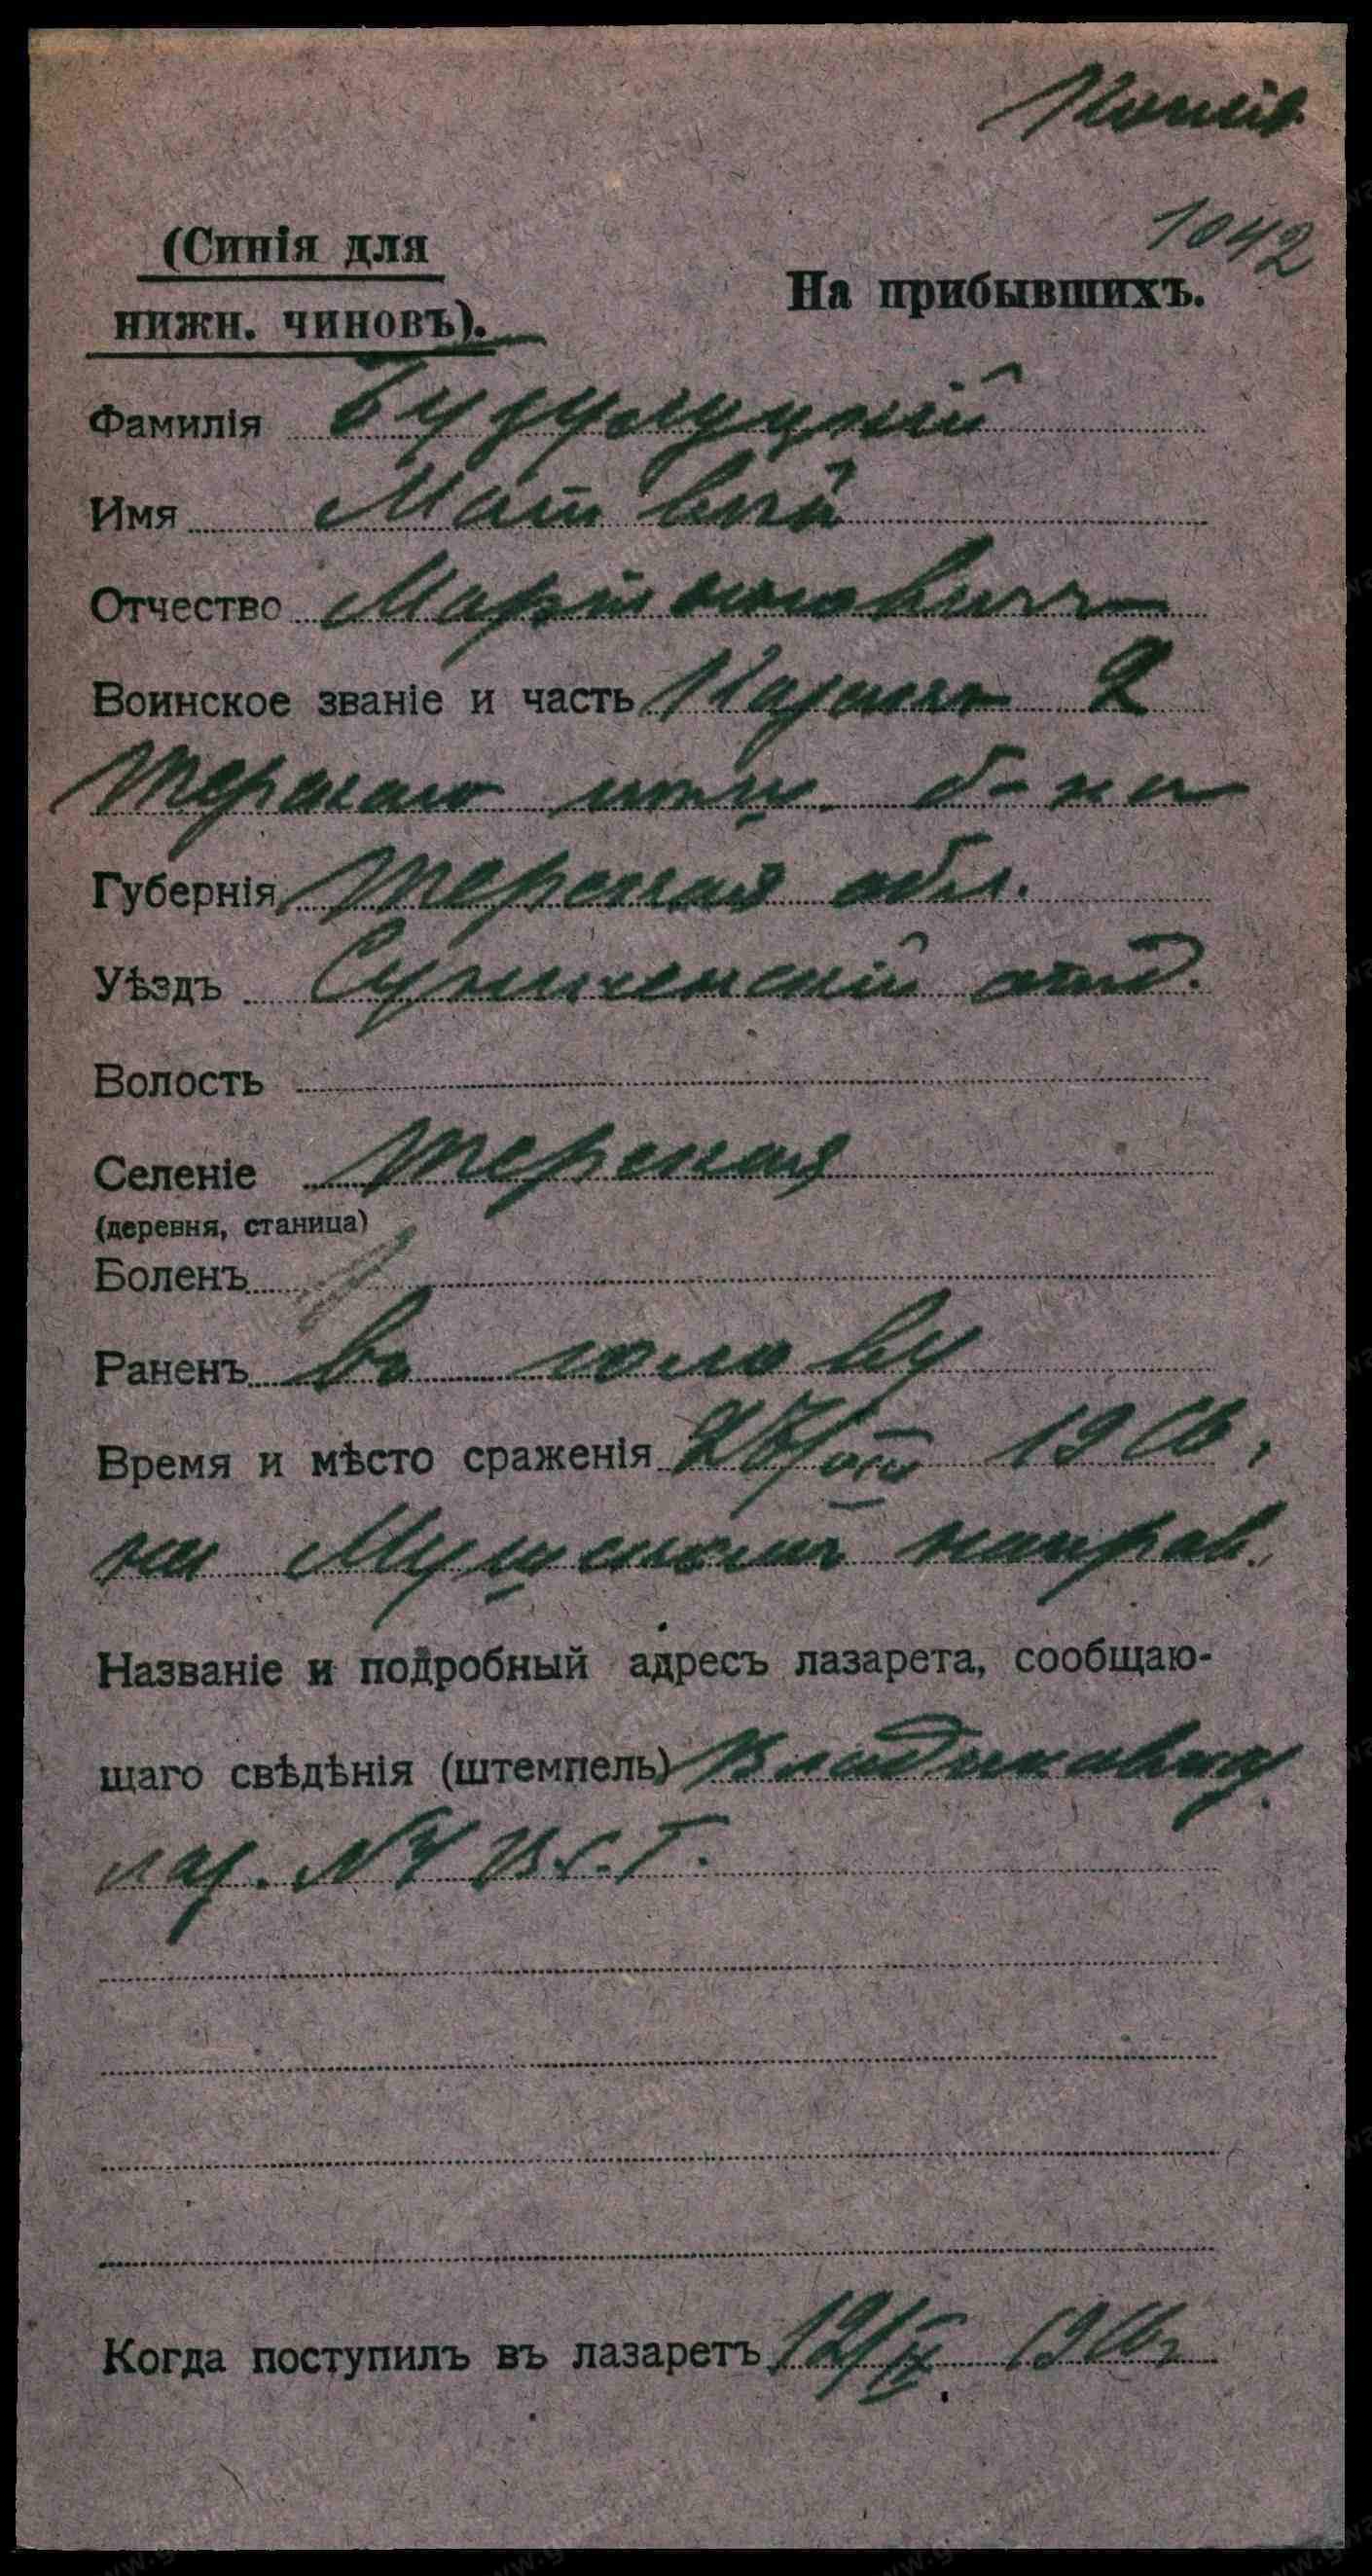 1042
(Синія для
На прибывшихъ.
нижн. чиновъ).
Фамилія Бузулуцкій
Имя Матвей
Отчество
Воинское званіе и часть Казакъ 2
Терскаго б-на
Губернія Терская обл.
Уѣздъ Сунженскій отд.
Волость
Селеніе Терская
(деревня, станица)
Боленъ
Раненъ въ голову
Время и мѣсто сраженія 1916,
на Мушскомъ направ.
Названіе и подробный адресъ лазарета, сообщаю-
щаго свѣдѣнія (штемпель) Владикавказ.
лаз. №4 В.С.Г.
Когда поступилъ въ лазаретъ 12/IX 1916